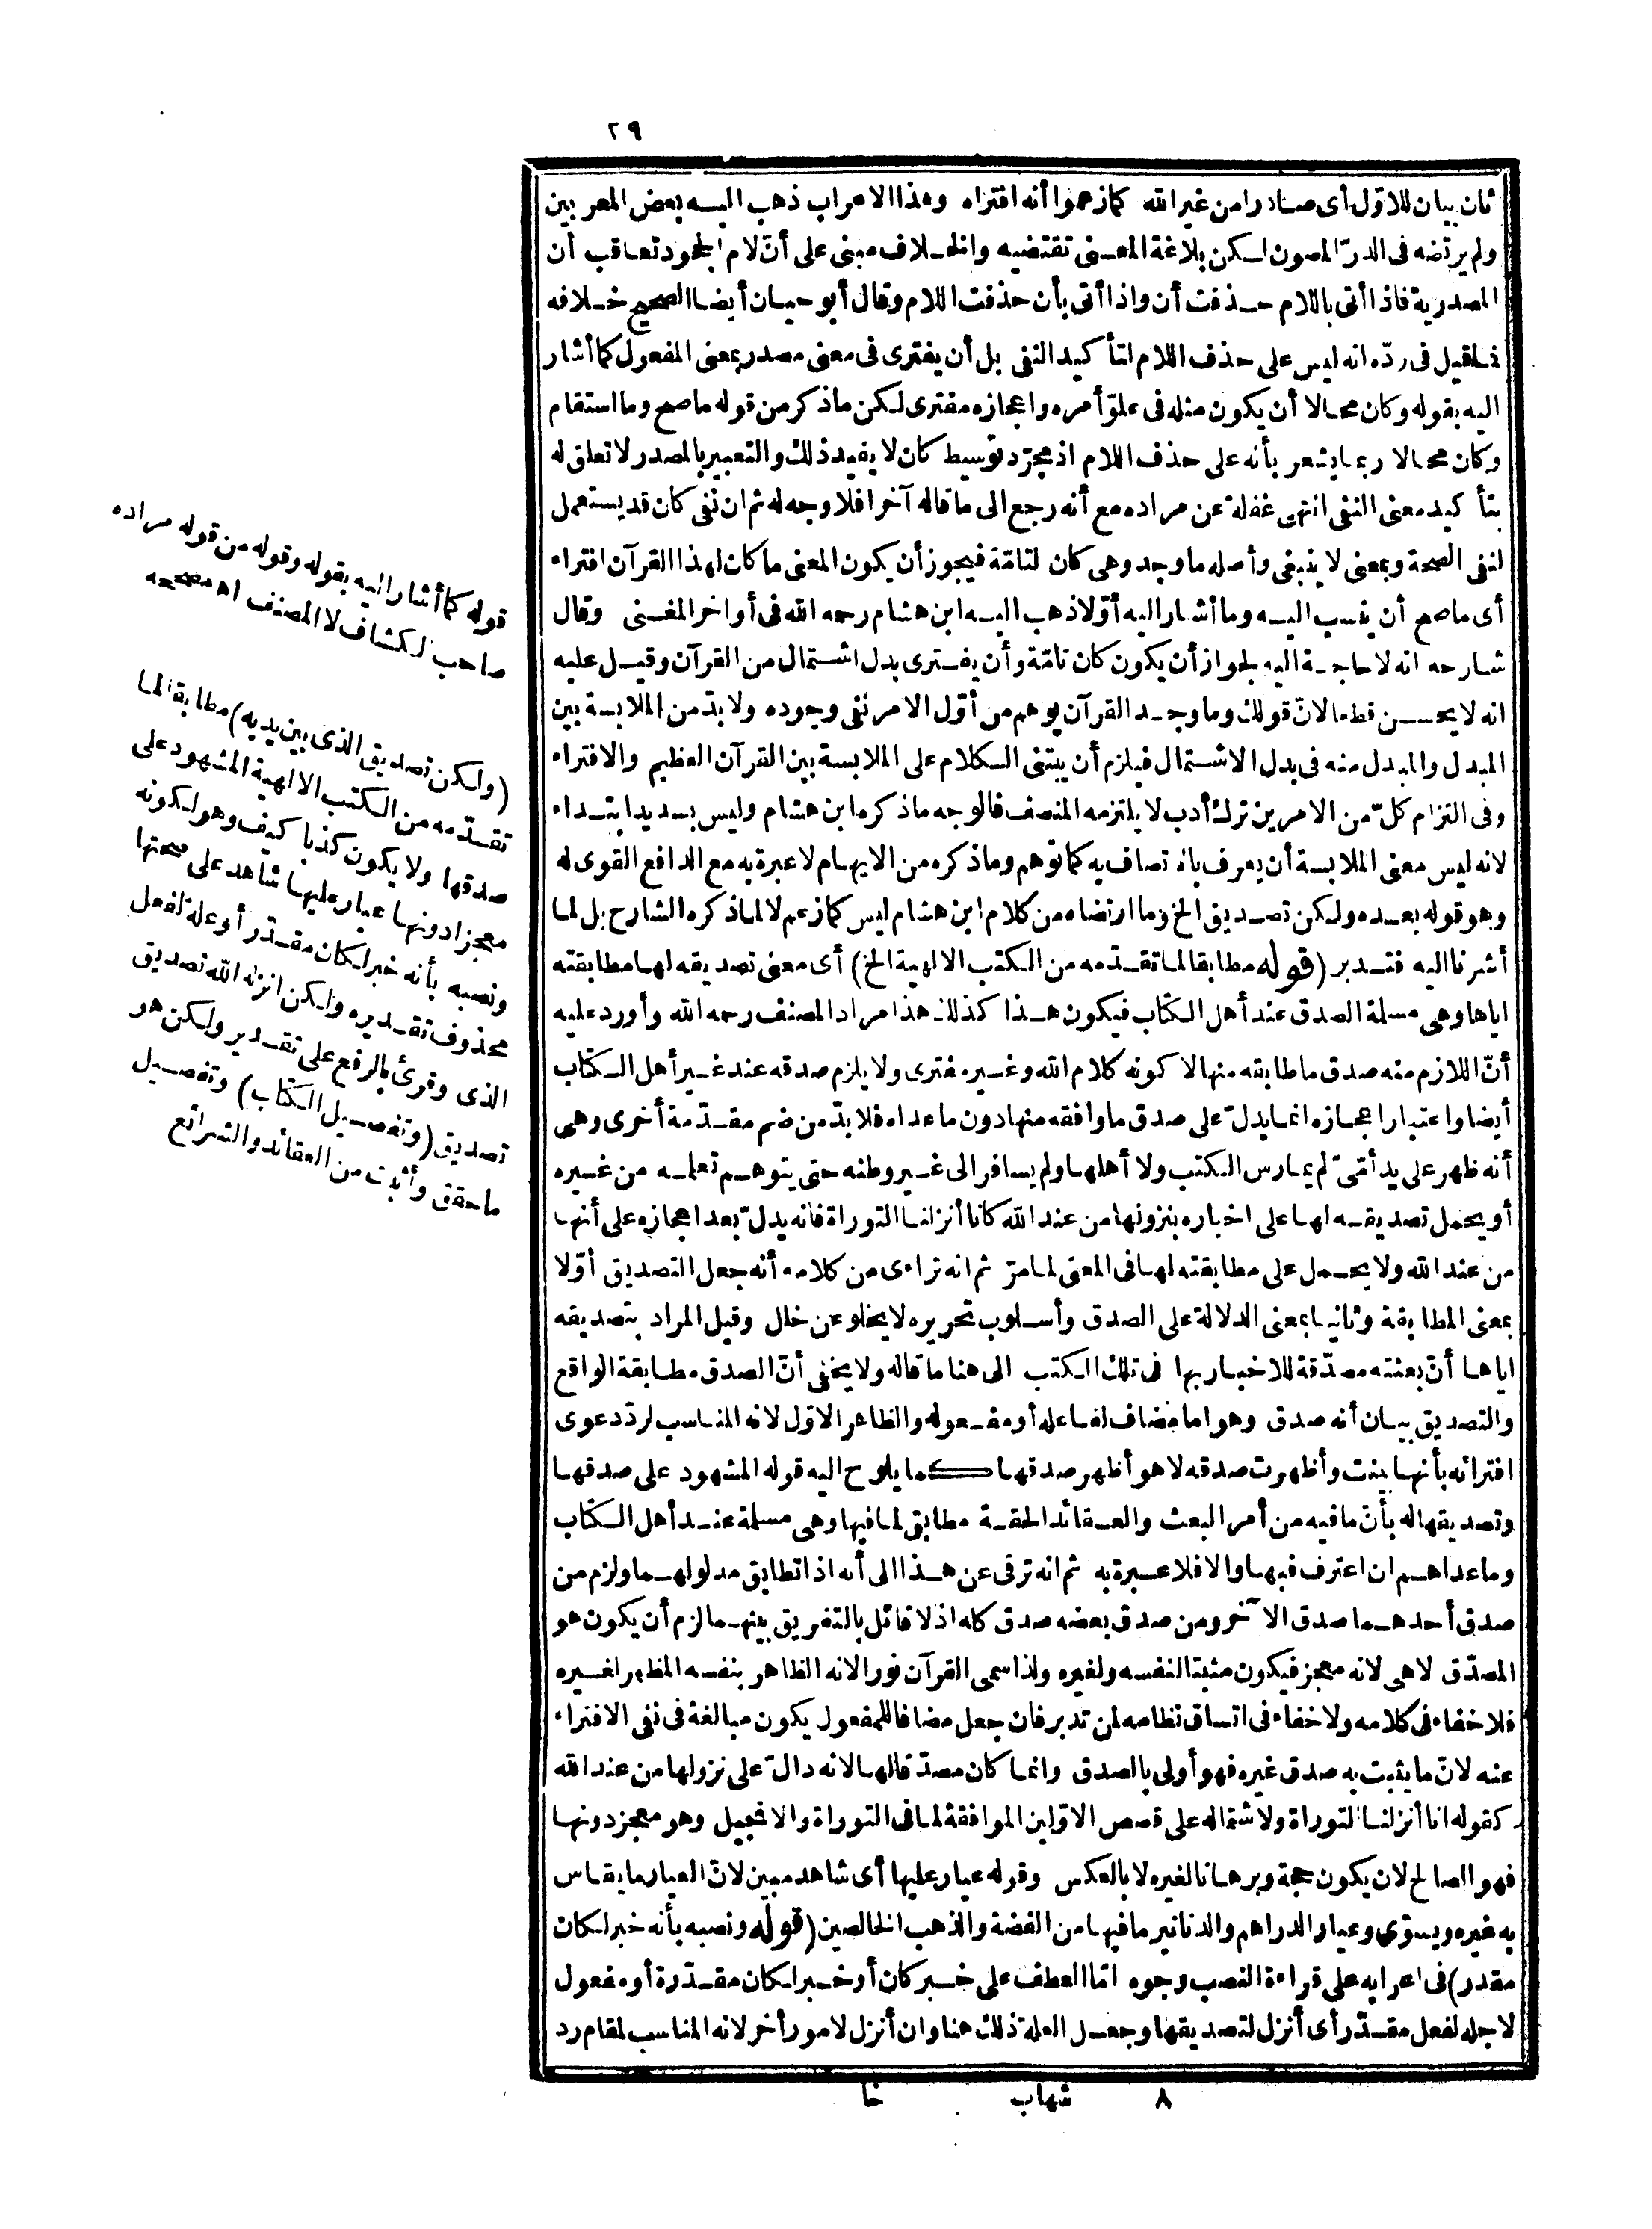 ٢٩
ثان بيان للاوّل أى صادرا من غير الله كما زعموا أنه افتراه وهذا الاعراب ذهب اليه بعض المعربين
ولم يرتضه فى الدرّ المصون لكن بلاغة المعنى تقتضيه والخلاف مبنى على أنّ لام الجحود تعاقب أن
المصدرية فاذا أتى باللام حذفت أن واذا أتى بأن حذفت اللام وقال أبو حيان أيضا الصحيح خلافه
فما قيل فى ردّه انه ليس على حذف اللام لتأكيد النفى بل أن يفترى فى معنى مصدر بمعنى المفعول كما أشار
اليه بقوله وكان محالا أن يكون مثله فى علوّ أمره واعجازه مفترى لكن ما ذكر من قوله ما صح وما استقام
وكان محالا ربما يشعر بأنه على حذف اللام اذ مجرّد توسيط كان لا يفيد ذلك والتعبير بالمصدر لا تعلق له
بتأكيد معنى النفى انتهى غفلة عن مراده مع أنه رجع الى ما قاله آخرا فلا وجه له ثم ان نفى كان قد يستعمل
لنفى الصحة وبمعنى لا ينبغى وأصله ما وجد وهى كان التامّة فيجوز أن يكون المعنى ما كان لهذا القرآن افتراء
أى ما صح أن ينسب اليه وما أشار اليه أوّلا ذهب اليه ابن هشام رحمه الله فى أواخر المغنى وقال
شارحه انه لا حاجة اليه لجواز أن يكون كان تامّة وأن يفترى بدل اشتمال من القرآن وقيل عليه
انه لا يحسن قطعا لانّ قولك وما وجد القرآن يوهم من أوّل الامر نفى وجوده ولا بدّ من الملابسة بين
المبدل والمبدل منه فى بدل الاشتمال فيلزم أن يبتنى الكلام على الملابسة بين القرآن العظيم والافتراء
وفى التزام كلّ من الامرين ترك أدب لا يلتزمه المنصف فالوجه ما ذكره ابن هشام وليس بسديد ابتداء
لانه ليس معنى الملابسة أن يعرف باتصافه به كما توهم وما ذكره من الايهام لا عبرة به مع الدافع القوى له
وهو قوله بعده ولكن تصديق الخ وما ارتضاه من كلام ابن هشام ليس كما زعم لا لما ذكره الشارح بل لما
أشرنا اليه فتدبر (قوله مطابقا لما تقدّمه من الكتب الالهية الخ) أى معنى تصديقه لها مطابقته
اياها وهى مسلمة الصدق عند أهل الكتاب فيكون هذا كذلك هذا مراد المصنف رحمه الله وأورد عليه
أنّ اللازم منه صدق ما طابقه منها لا كونه كلام الله وغيره مفترى ولا يلزم صدقه عند غير أهل الكتاب
أيضا واعتبار اعجازه انما يدلّ على صدق ما وافقه منها دون ما عداه فلا بدّ من ضم مقدّمة أخرى وهى
أنه ظهر على يد أمّىّ لم يمارس الكتب ولا أهلها ولم يسافر الى غير وطنه حتى يتوهم تعلمه من غيره
أو يحمل تصديقه لها على اخباره بنزولها من عند الله كانا أنزلنا التوراة فانه يدلّ بعد اعجازه على أنها
من عند الله ولا يحمل على مطابقته لها فى المعنى لما مرّ ثم انه تراءى من كلامه أنه جعل التصديق أوّلا
بمعنى المطابقة وثانيا بمعنى الدلالة على الصدق وأسلوب تحريره لا يخلو عن خلل وقيل المراد بتصديقه
اياها أنّ بعثته مصدّقة للاخبار بها فى تلك الكتب الى هنا ما قاله ولا يخفى أنّ الصدق مطابقة الواقع
والتصديق بيان أنه صدق وهو اما مضاف لفاعله أو مفعوله والظاهر الاوّل لانه المناسب لردّ دعوى
افترائه بأنها بينت وأظهرت صدقه لا هو أظهر صدقها كما يلوح اليه قوله المشهود على صدقها
وتصديقها له بأنّ ما فيه من أمر البعث والعقائد الحقة مطابق لما فيها وهى مسلمة عند أهل الكتاب
وما عداهم ان اعترف فبها والا فلا عبرة به ثم انه ترقى عن هذا الى أنه اذا تطابق مدلولهما ولزم من
صدق أحدهما صدق الآخر ومن صدق بعضه صدق كله اذ لا قائل بالتفريق بينهما لزم أن يكون هو
المصدّق لا هى لانه معجز فيكون مثبتا لنفسه ولغيره ولذا سمى القرآن نورا لانه الظاهر بنفسه المظهر لغيره
فلا خفاء فى كلامه ولا خفاء فى اتساق نظامه لمن تدبر فان جعل مضافا للمفعول يكون مبالغة فى نفى الافتراء
عنه لانّ ما يثبت به صدق غيره فهو أولى بالصدق وانما كان مصدّقا لها لانه دالّ على نزولها من عند الله
كقوله انا أنزلنا التوراة ولاشتماله على قصص الاوّلين الموافقة لما فى التوراة والانجيل وهو معجز دونها
فهو الصالح لان يكون حجة وبرهانا لغيره لا بالعكس وقوله عيار عليها أى شاهد مبين لانّ العيار ما يقاس
به غيره ويسوّى وعيار الدراهم والدنانير ما فيها من الفضة والذهب الخالصين (قوله ونصبه بأنه خبر لكان
مقدر) فى اعرابه على قراءة النصب وجوه امّا العطف على خبر كان أو خبر لكان مقدّرة أو مفعول
لاجله لفعل مقدّر أى أنزل لتصديقها وجعل العلة ذلك هنا وان أنزل لامور أخر لانه المناسب لمقام رد
٨ شهاب خا
قوله كما أشار اليه بقوله وقوله من قوله مراده
صاحب الكشاف لا المصنف اه مصححه
(ولكن تصديق الذى بين يديه) مطابقا لما
تقدّمه من الكتب الالهية المشهود على
صدقها ولا يكون كذبا كيف وهو لكونه
معجزا دونها عيار عليها شاهد على صحتها
ونصبه بأنه خبر لكان مقدّر أو علة لفعل
محذوف تقديره ولكن أنزله الله تصديق
الذى وقرئ بالرفع على تقدير ولكن هو
تصديق (وتفصيل الكتاب) وتفصيل
ما حقق وأثبت من العقائد والشرائع